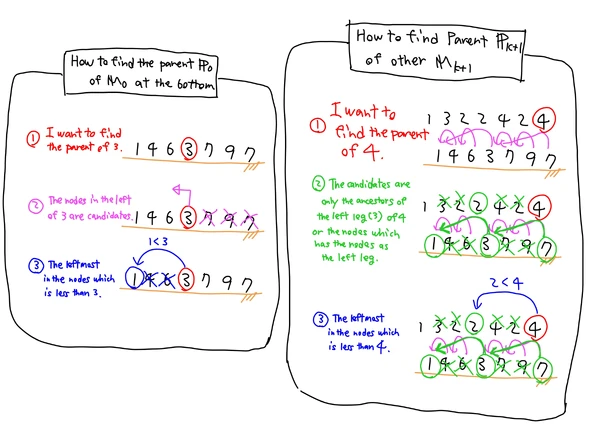 How to find the parent ℙ0
of M0 at the bottom
① I want to find
the parent of 3.
1 4 6 3 7 9 7
② The nodes in the left
of 3 are candidates.
1 4 6 3 7 9 7
1<3
③ The leftmost
in the nodes which
is less than 3.
1 4 6 3 7 9 7
How to find Parent ℙk+1
of other Mk+1
① I want to
find the parent
of 4.
1 3 2 2 4 2 4
1 4 6 3 7 9 7
② The candidates are
only the ancestors of
the left leg (3) of 4
or the nodes which
has the nodes as
the left leg.
1 3 2 2 4 2 4
1 4 6 3 7 9 7
2<4
③ The leftmost
in the nodes which
is less than 4.
1 3 2 2 4 2 4
1 4 6 3 7 9 7